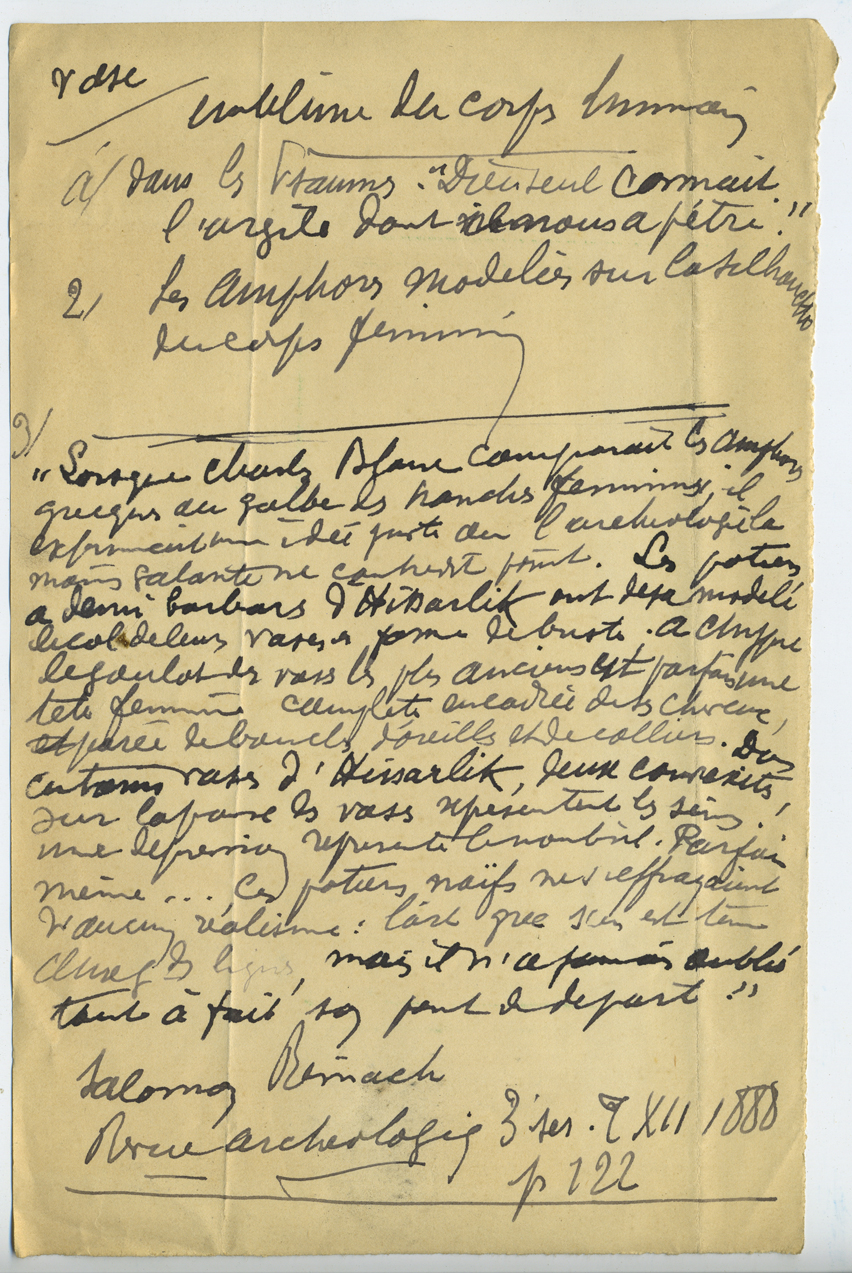 vase
emblème du corps humain
a/ dans les Psaumes : "Dieu seul connait
l'argile dont il nous a pétri."
2/ Les Amphores modelées sur la silhouette
du corps feminin
3/
"Lorsque Charles Blanc comparait les amphores
grecques au galbe des hanches feminines, il
exprimait une idée juste que l'archeologie la
moins galante ne contredit point. Les potiers
a demi barbares d'Hissarlik ont deja modelé
le col de leurs vases en forme de buste. A Chypre
le goulot des vases les plus anciens est parfois une
tete feminine complete encadrée de ses cheveux,
et parée de boucles d'oreilles et de colliers. Dans
certains vases d'Hissarlik, deux convexités,
sur la panse des vases representent les seins,
une depression represente le nombril. Parfois
même ... Ces potiers naïfs ne s'effrayaient
d'aucun réalisme : l'art grec s'en est tenu
au des lignes, mais il n'a jamais oublié
tout à fait son point de depart."
Salomon Reinach
Revue archeologiq 3 ser. T XII 1888
p 122